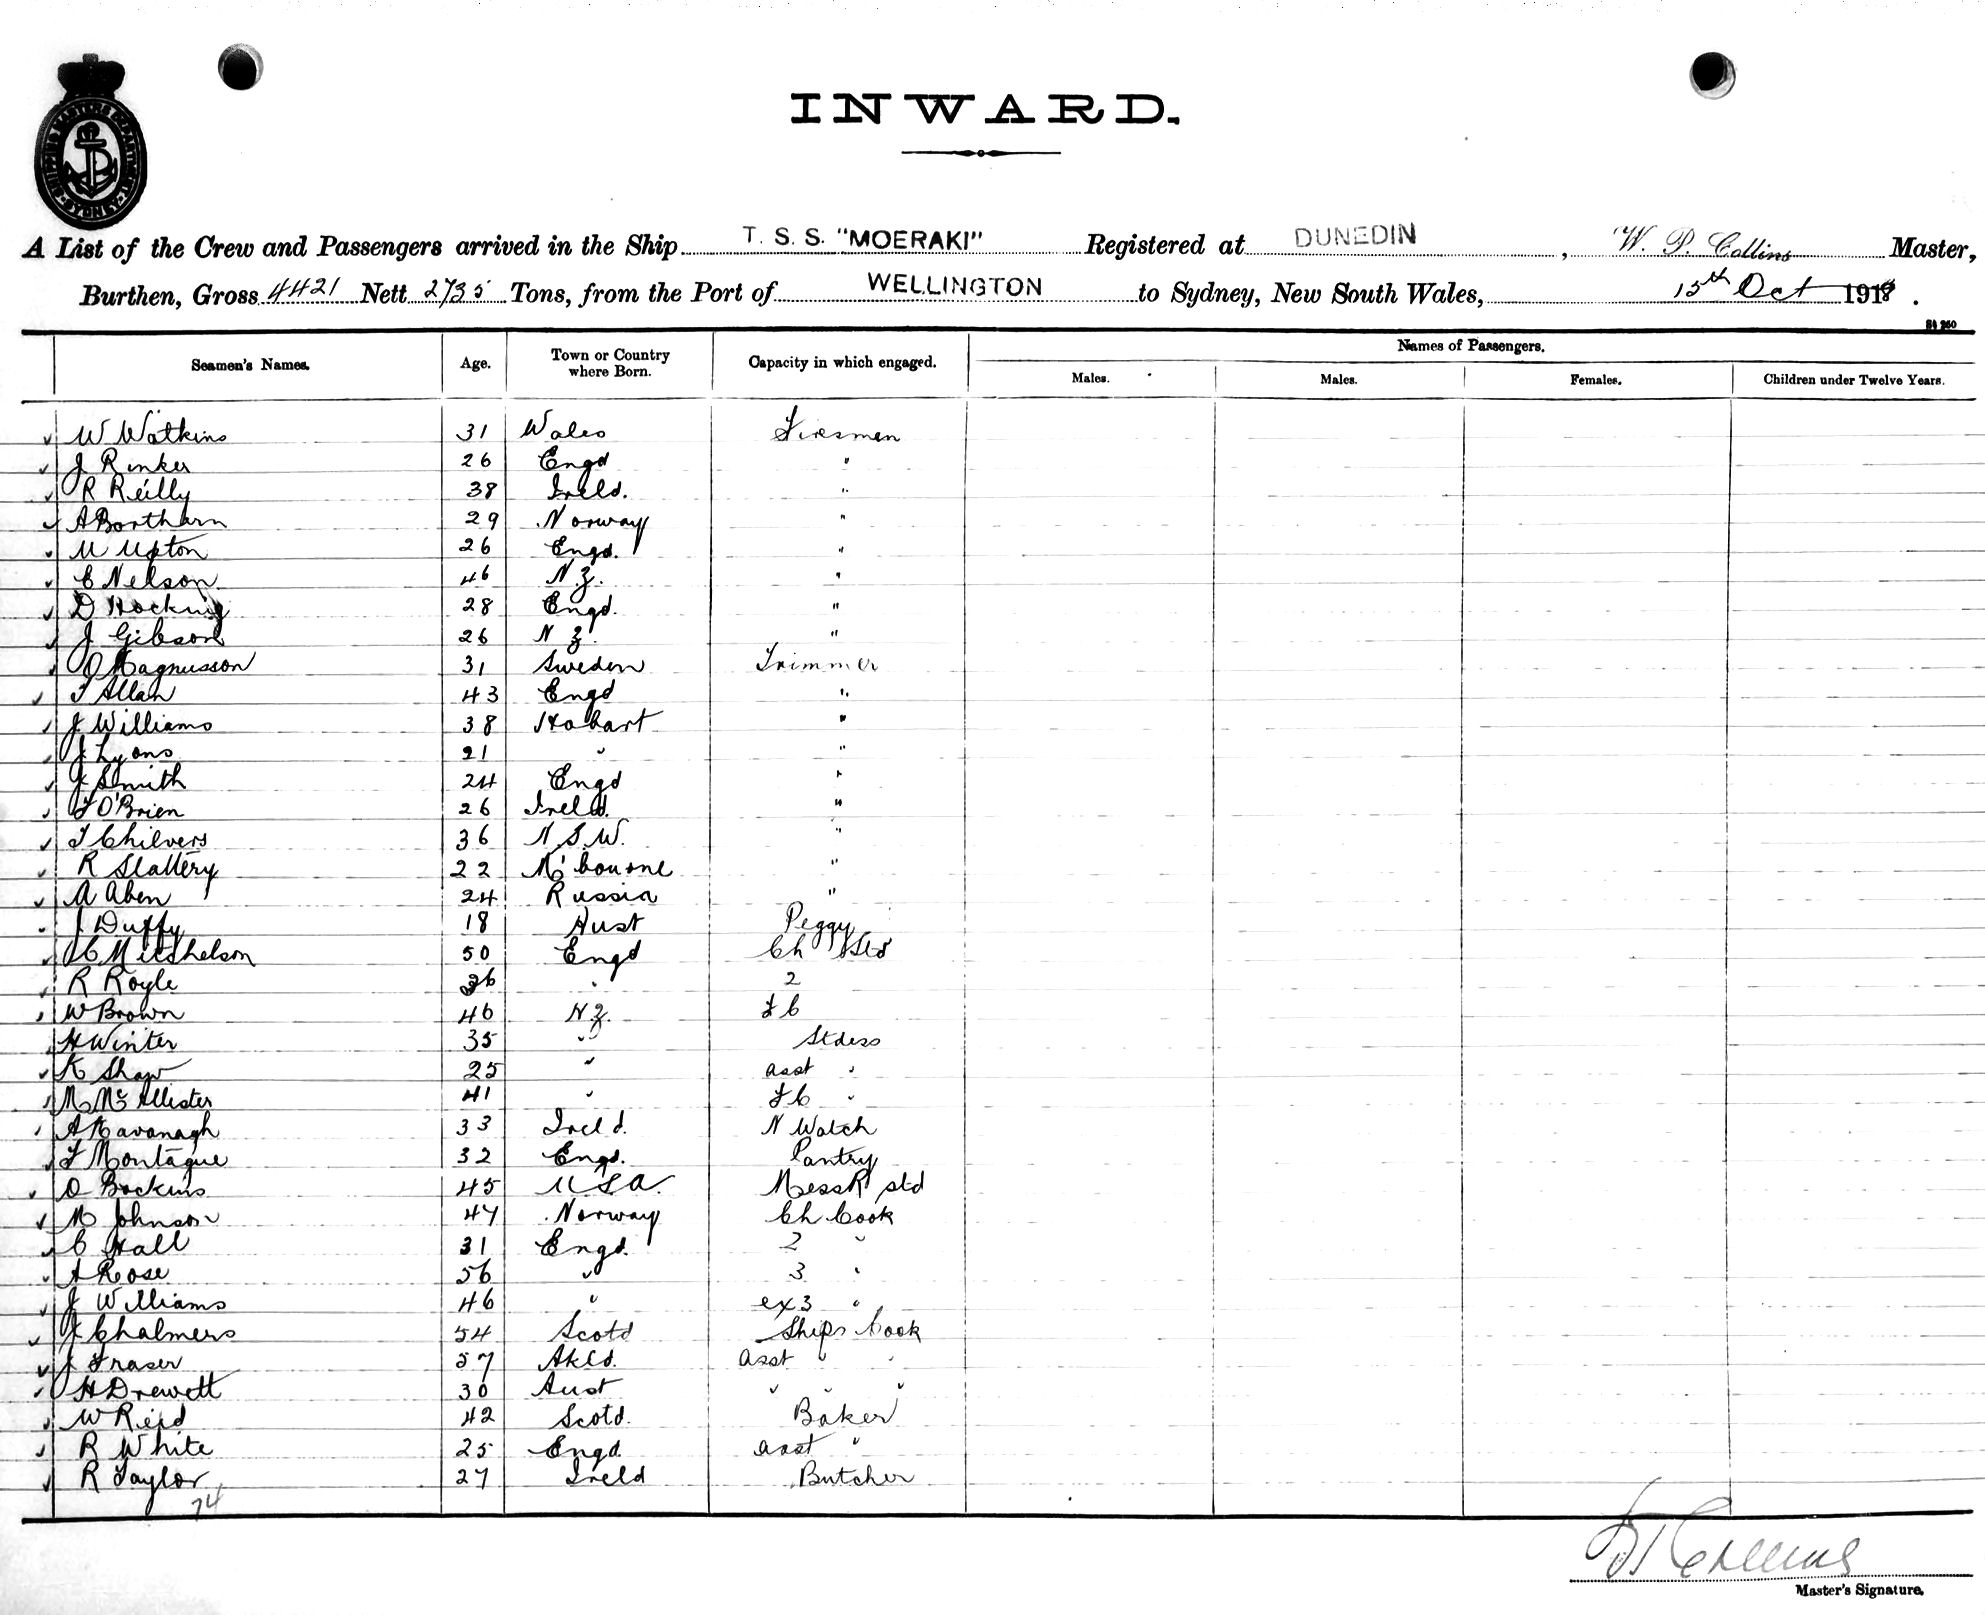 SHIPPING MASTERS DEPARTMENT SYDNEY
INWARD.
A List of the Crew and Passengers arrived in the Ship T. S. S. "MOERAKI" Registered at DUNEDIN, W. P. Collins Master,
Burthen, Gross 4421 Nett 2735 Tons, from the Port of WELLINGTON to Sydney, New South Wales, 15th Oct 1918.
St 260
Seamen's Names. Age. Town or Country where Born. Capacity in which engaged. Names of Passengers.
Males. Males. Females. Children under Twelve Years.
W Watkins 31 Wales Firemen
J Rinker 26 Engd "
R Reilly 38 Ireld. "
A Bortharn 29 Norway "
U Upton 26 Engd. "
E Nelson 46 N.Z. "
D Hocking 28 Engd. "
J Gibson 26 N Z. "
O Magnusson 31 Sweden Trimmer
T Allan 43 Engd "
J Williams 38 Hobart "
J Lyons 21 " "
J Smith 24 Engd "
T O'Brien 26 Ireld. "
T Chilvers 36 N.S.W. "
R Slattery 22 M'bourne "
A Aben 24 Russia "
J Duffy 18 Aust Peggy
C Mitchelson 50 Engd Ch Std
R Royle 36 " 2
W Brown 46 N.Z. F C
H Winter 35 " Stdess
K Shaw 25 " asst "
M McAllister 41 " F C "
A Kavanagh 33 Ireld. N Watch
F Montague 32 Engd. Pantry
O Bockins 45 U S A. MessR std
M Johnson 47 Norway Ch Cook
C Hall 31 Engd. 2 "
A Rose 56 " 3 "
J Williams 46 " ex 3 "
J Chalmers 54 Scotd Ships Cook
J Fraser 57 Akld. Asst " "
H Drewett 30 Aust " " "
W Reid 42 Scotd. Baker
R White 25 Engd. asst "
R Taylor 27 Ireld Butcher
74
Collins
Master's Signature.